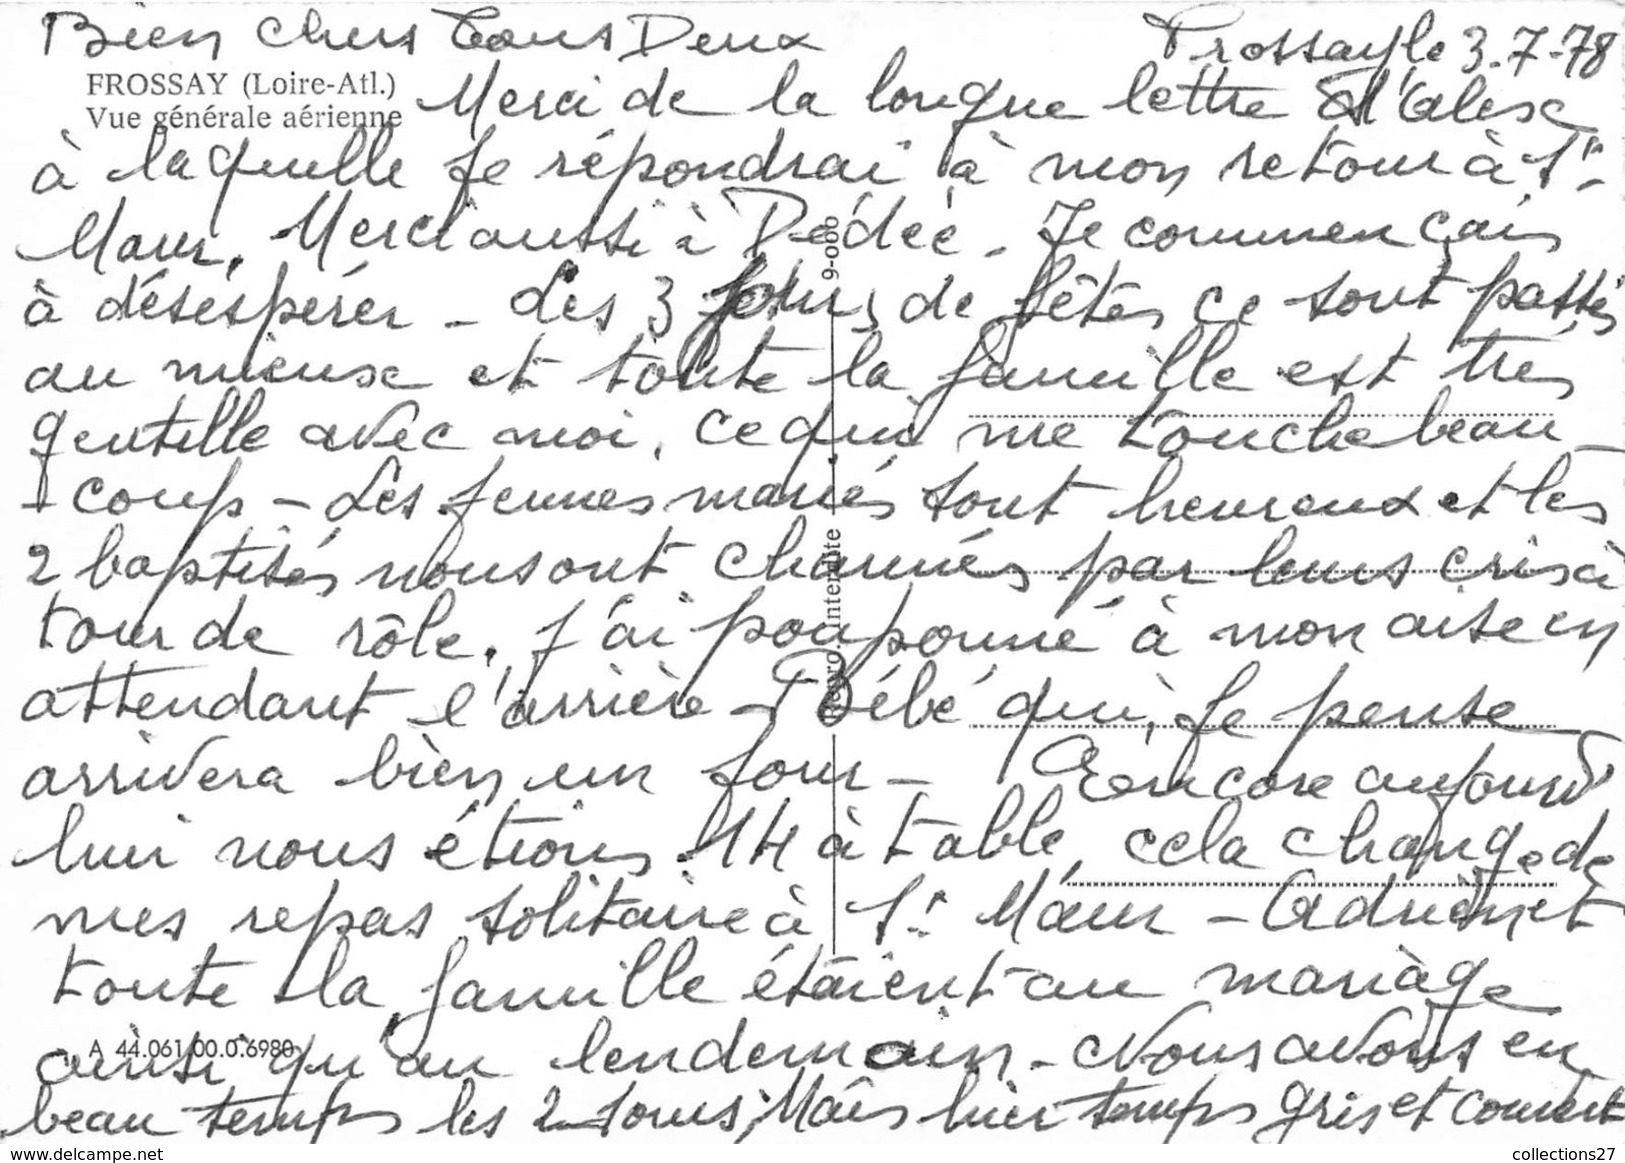 Bien chers tous Deux
Frossay le 3.7-78
FROSSAY (Loire-Atl.)
Vue générale aérienne
Merci de la longue lettre d'Alex
à laquelle je répondrai à mon retour à St-
Maur. Merci aussi à Dédée. Je commençais
à désespérer - Les 3 jours de fêtes ce sont passés
au mieux et toute la famille est très
gentille avec moi, ce qui me touche beau-
coup - Les jeunes mariés sont heureux et les
2 baptisés nous ont charmés par leurs cris à
tour de rôle. J'ai pouponné à mon aise en
attendant l'arrière-Bébé qui, je pense
arrivera bien un jour - Encore aujourd'
hui nous étions 14 à table, cela change de
mes repas solitaire à St Maur - Adrien et
toute la famille étaient au mariage
ainsi qu'au lendemain - Nous avons eu
beau temps les 2 jours, Mais hier temps gris et couvert
A 44.061.00.0.6980
Repro. Interdite
9-000
www.delcampe.net
collections27